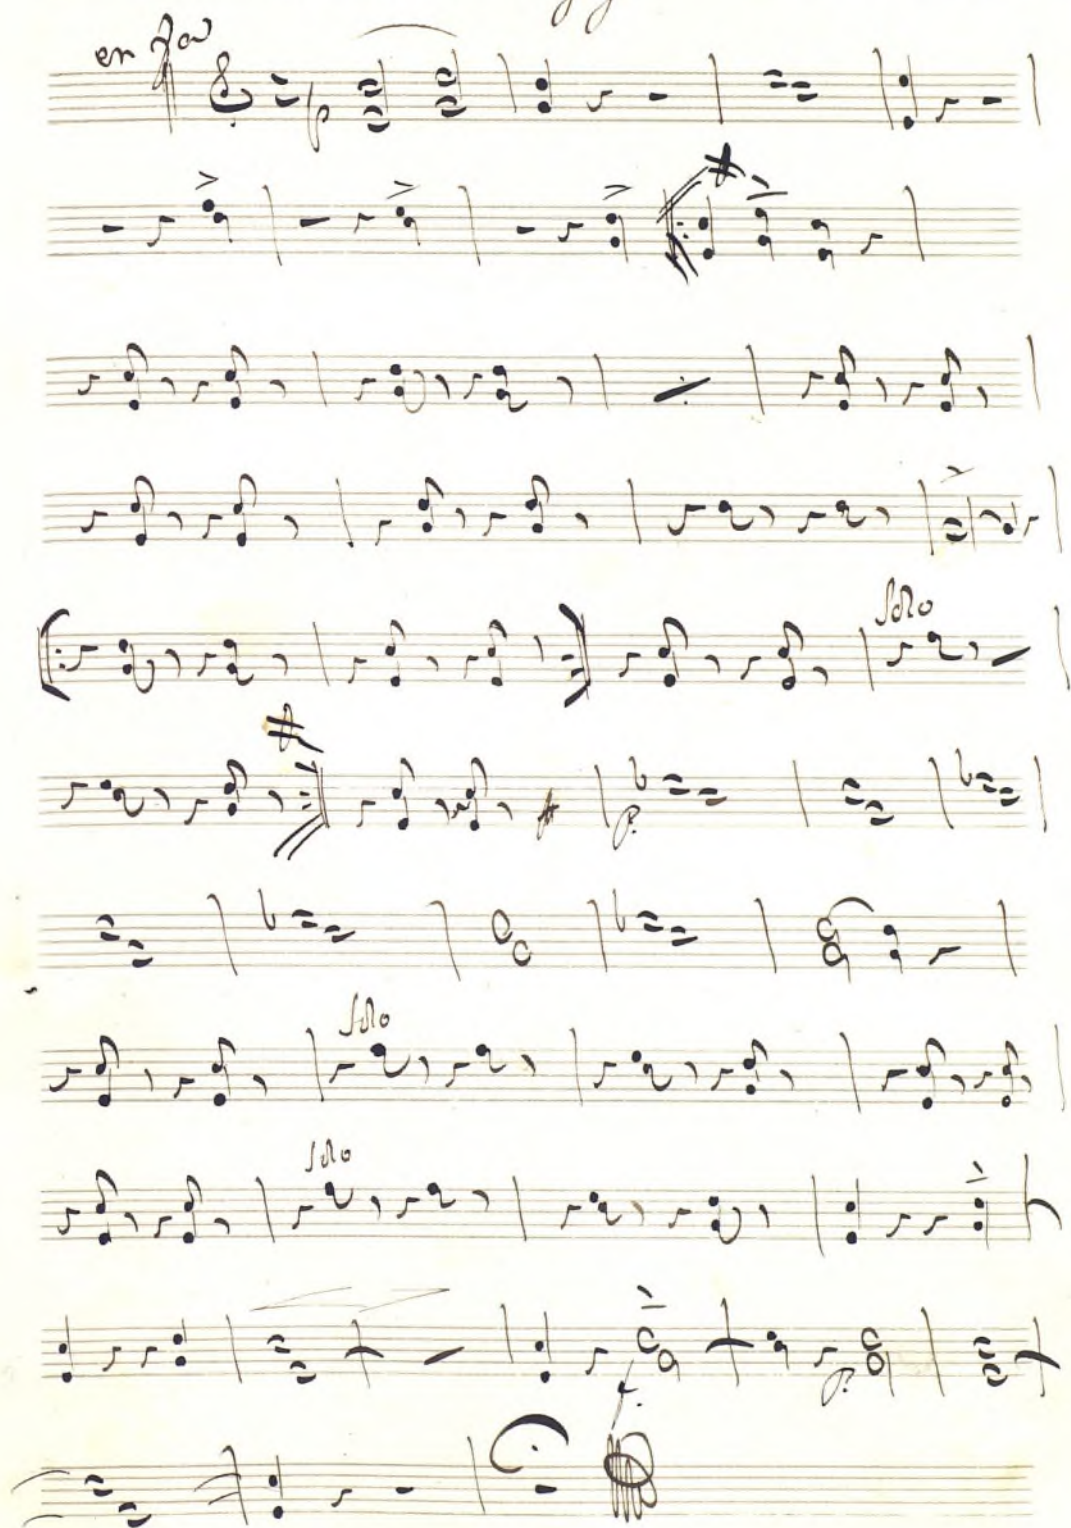 en fa
p
Solo
p.
Solo
Solo
f. p.